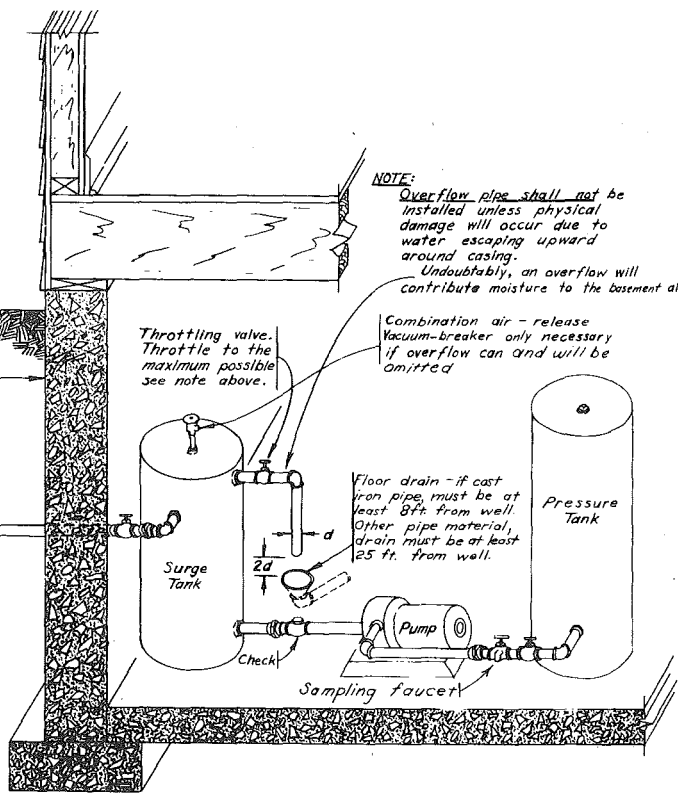 NOTE:
Overflow pipe shall not be
installed unless physical
damage will occur due to
water escaping upward
around casing.
Undoubtably, an overflow will
contribute moisture to the basement
Throttling valve.
Throttle to the
maximum possible
see note above.
Combination air - release
Vacuum-breaker only necessary
if overflow can and will be
omitted
Floor drain - if cast
iron pipe, must be at
least 8ft. from well.
Other pipe material,
drain must be at least
25 ft. from well.
Pressure
Tank
d
2d
Surge
Tank
Pump
Check
Sampling faucet